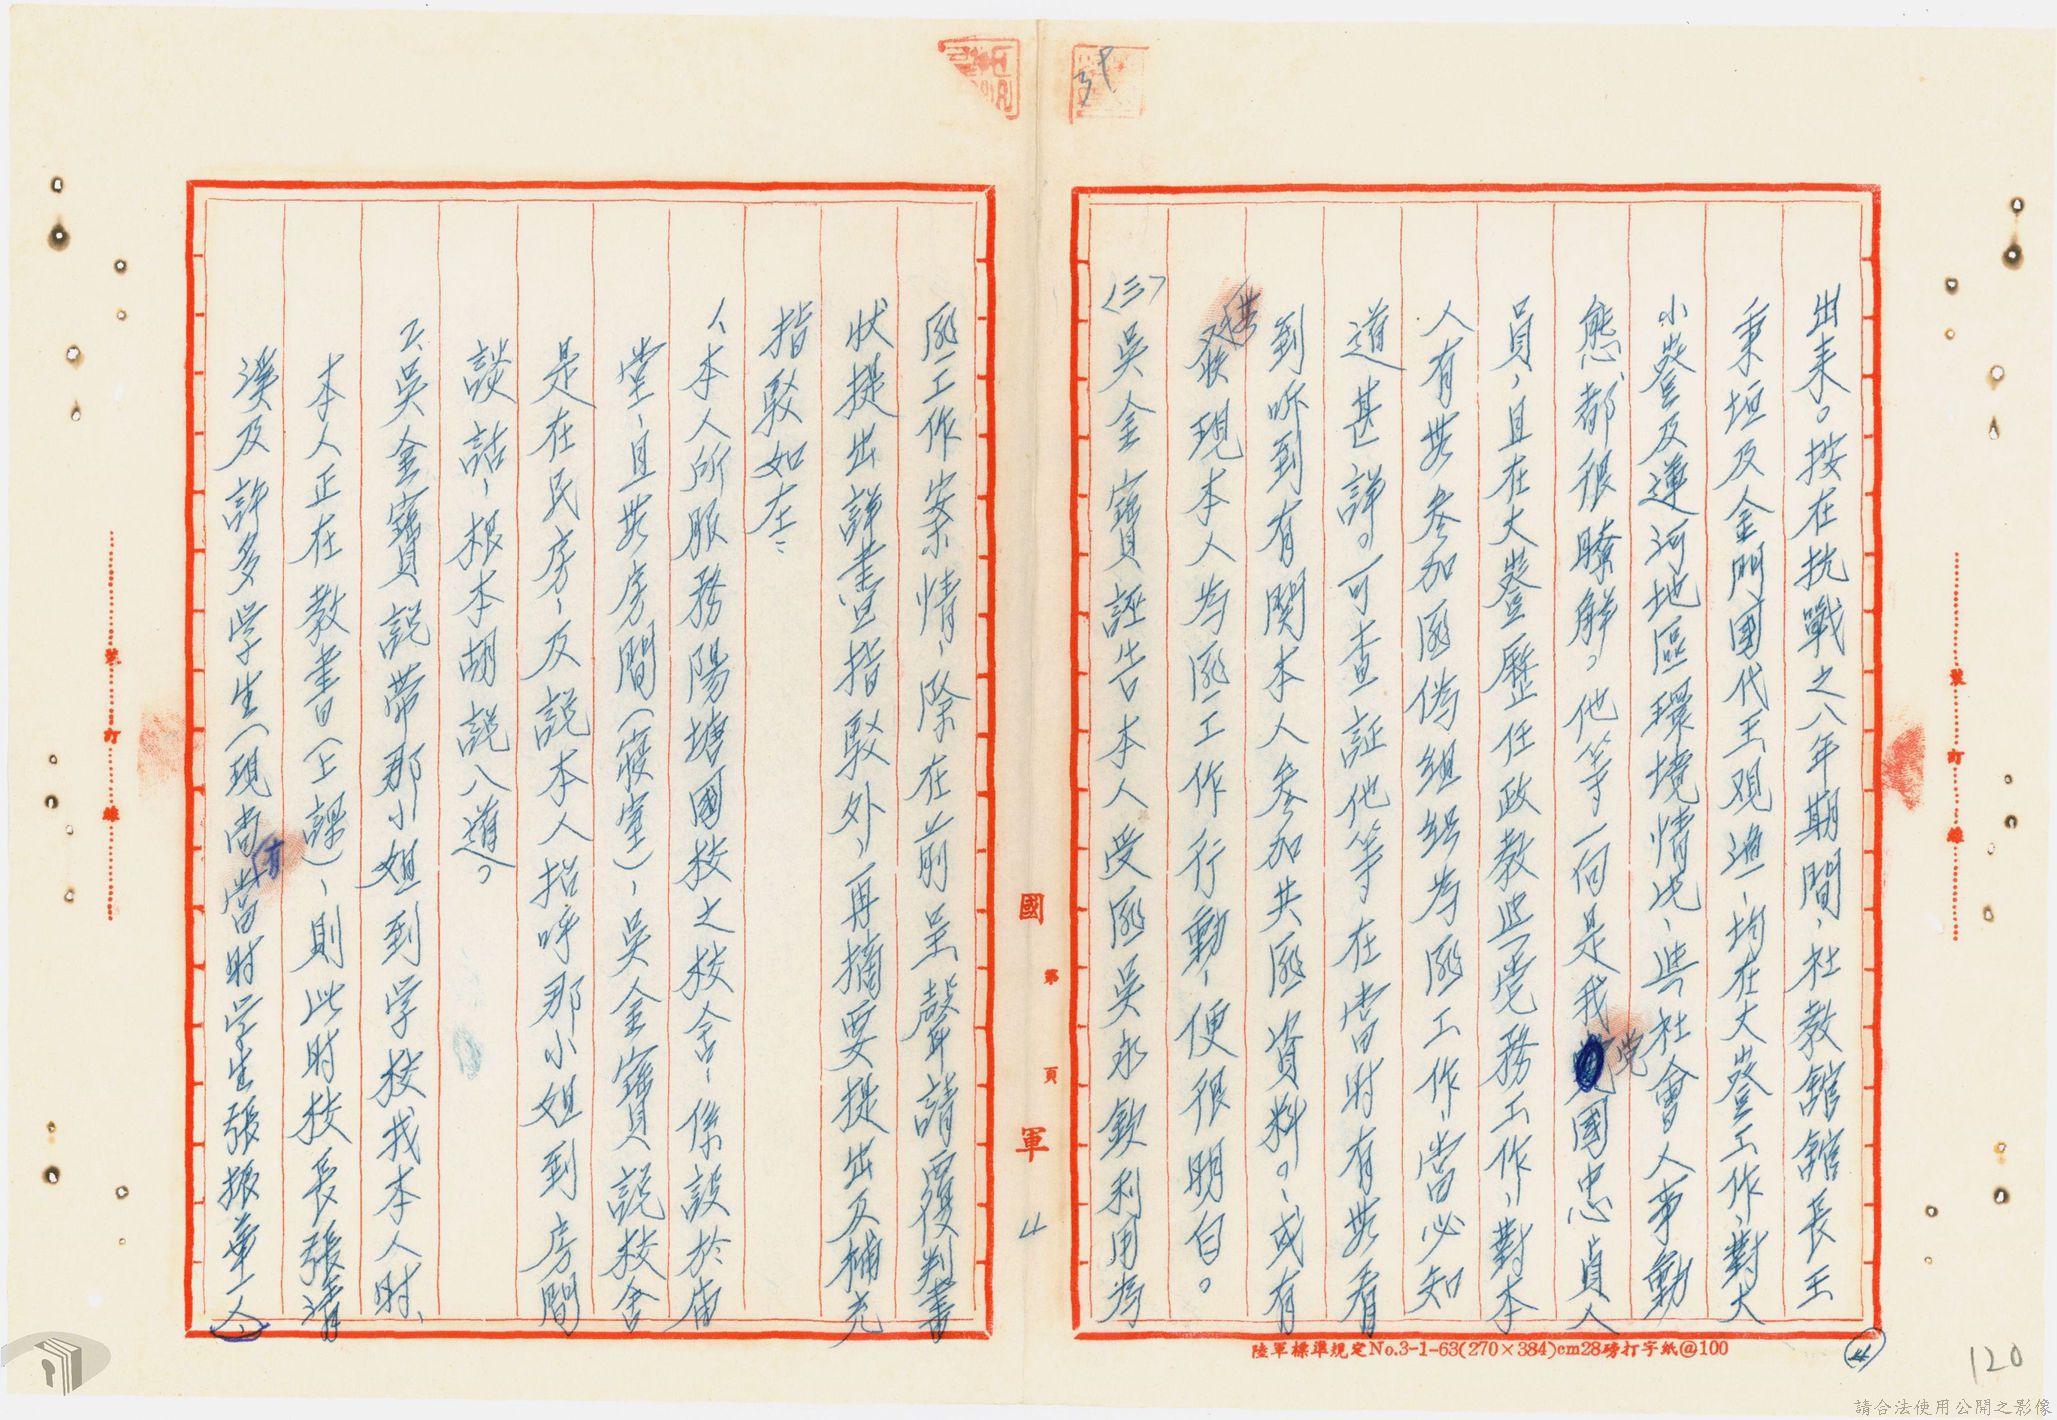 出來。按在抗戰之八年期間、社教舘舘長王
秉垣及金門國代王观漁、均在大嶝工作、對大
小嶝及蓮河地區環境情况、与社會人事動
態都很瞭解。他等一向是我党國忠貞人
員，且在大嶝歷任政教与党務工作，對本
人有無参加匪偽組織為匪工作，當必知
道甚詳。可查証他等在當时有無看
到听到有関本人参加共匪資料。或有
無發現本人為匪工作行動、便很明白。
㈢吳金寶誣告本人受匪吳永欽利用為
匪工作案情、除在前呈聲請覆判書
状提出詳盡指駁外，再摘要提出及補充
指駁如左：
1、本人所服務陽塘國校之校舍、係設於庙
堂、且無房間（寢室）、吳金寶說校舍
是在民房、及說本人招呼那小姐到房間
談話、根本胡說八道。
2、吳金寶說帶那小姐到学校找本人时、
本人正在教書（上課）、則此时校長張清
漢及許多学生（現尚有當时学生張振華一人
國 第 頁 軍
4
裝 訂 線
裝 訂 線
陸軍標準規定No.3-1-63(270×384)cm28磅打字紙@100
4
120
請合法使用公開之影像